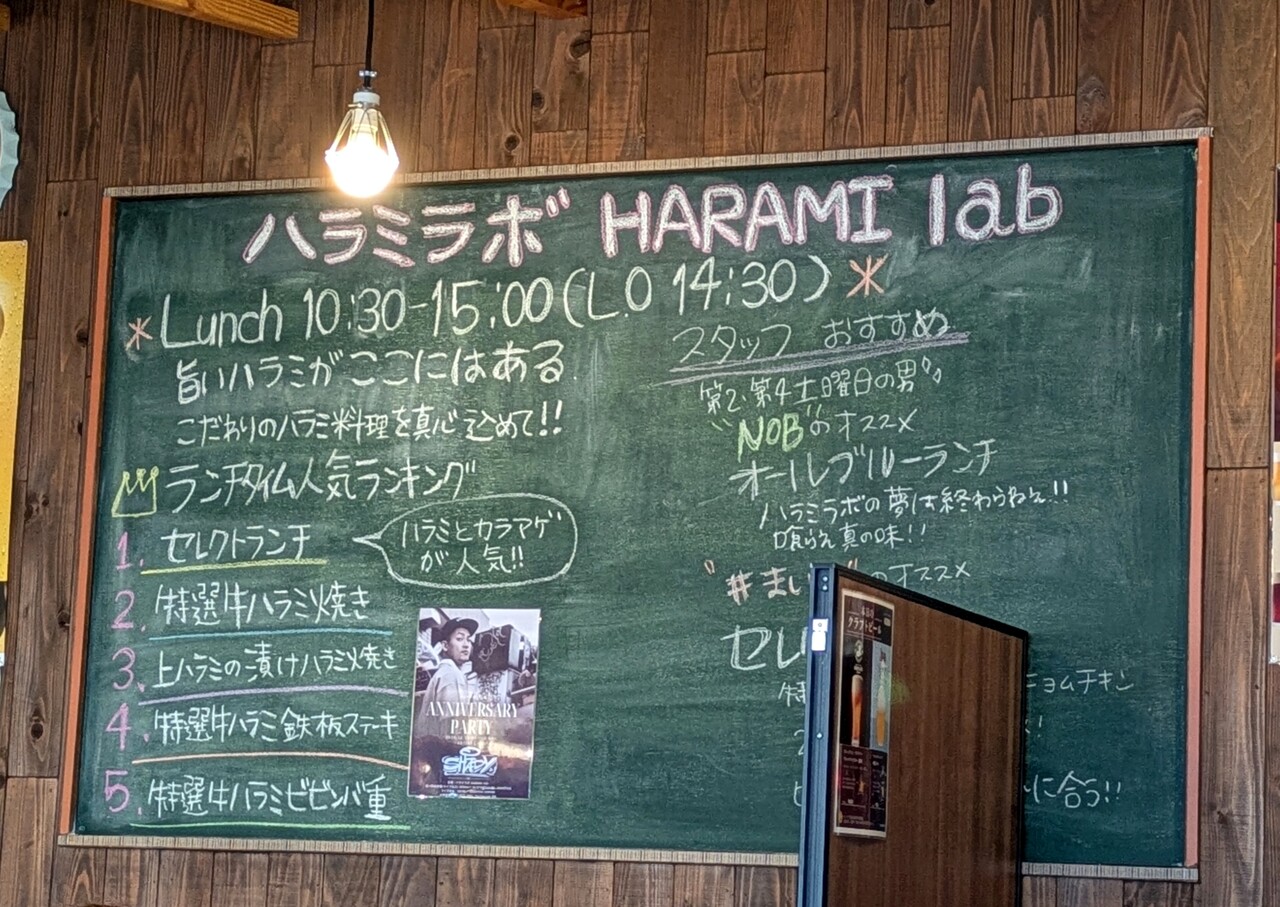 ハラミラボ HARAMI lab
*Lunch 10:30-15:00(L.O 14:30)*
旨いハラミがここにはある
こだわりのハラミ料理を真心込めて!!
ランチタイム人気ランキング
1. セレクトランチ
ハラミとカラアゲ
が人気!!
2. 特選牛ハラミ焼き
3. 上ハラミの漬けハラミ焼き
4. 特選牛ハラミ鉄板ステーキ
5. 特選牛ハラミビビンバ重
ANNIVERSARY
PARTY
スタッフ おすすめ
第2.第4土曜日の男
"NOB"のオススメ
オールブルーランチ
ハラミラボの夢は終わらねぇ!!
喰らえ真の味!!
"#まい のオススメ
セレ
特 ニョムチキン
に合う!!
クラフトビール